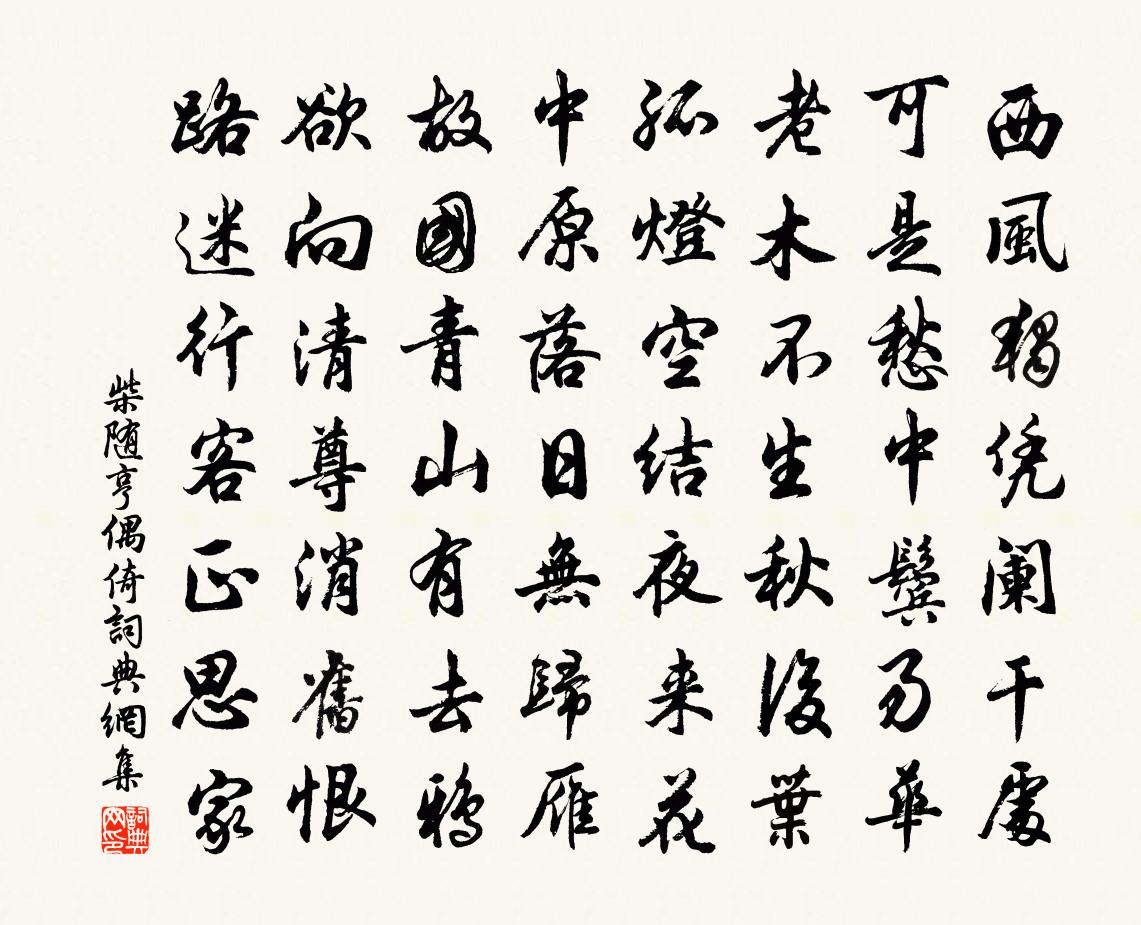 西風獨凭闌干處
可是愁中鬢易華
老木不生秋後葉
孤燈空結夜来花
中原落日無歸雁
故國青山有去鴉
欲向清尊消舊恨
路迷行客正思家
柴随亨偶倚詞典網集
詞典网印